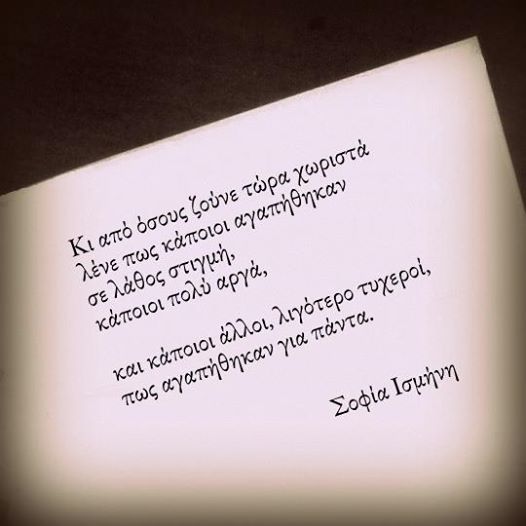 Κι από όσους ζούνε τώρα χωριστά
λένε πως κάποιοι αγαπήθηκαν
σε λάθος στιγμή,
κάποιοι πολύ αργά,
και κάποιοι άλλοι, λιγότερο τυχεροί,
πως αγαπήθηκαν για πάντα.
Σοφία Ισμήνη